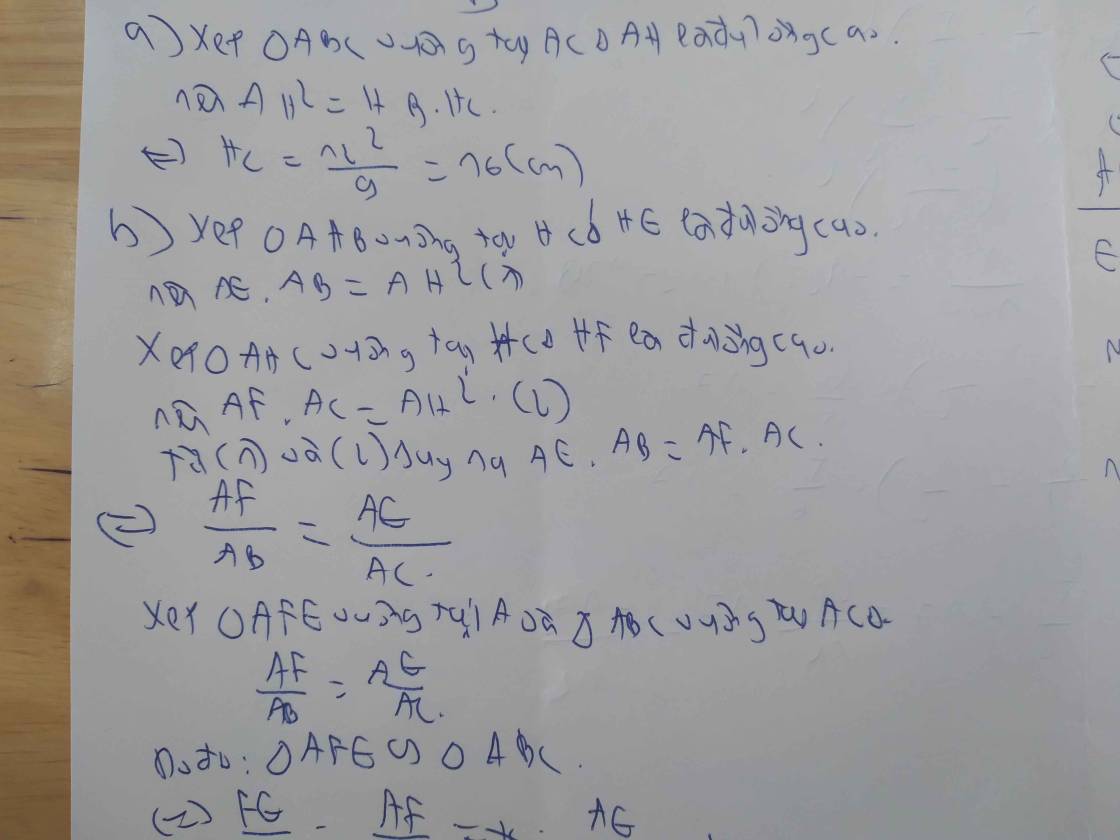 a) Xét △ABC vuông tại A có AH là đường cao.
nên AH² = HB.HC.
<=> HC = 12²/9 = 16(cm)
b) Xét △AHB vuông tại H có HE là đường cao.
nên AE.AB = AH² (1)
Xét △AHC vuông tại H có HF là đường cao.
nên AF.AC = AH². (2)
từ (1) và (2) suy ra AE.AB = AF.AC.
<=> AF/AB = AE/AC.
Xét △AFE vuông tại A và △ABC vuông tại A có
AF/AB = AE/AC.
Do đó: △AFE ∽ △ABC.
AF
AE